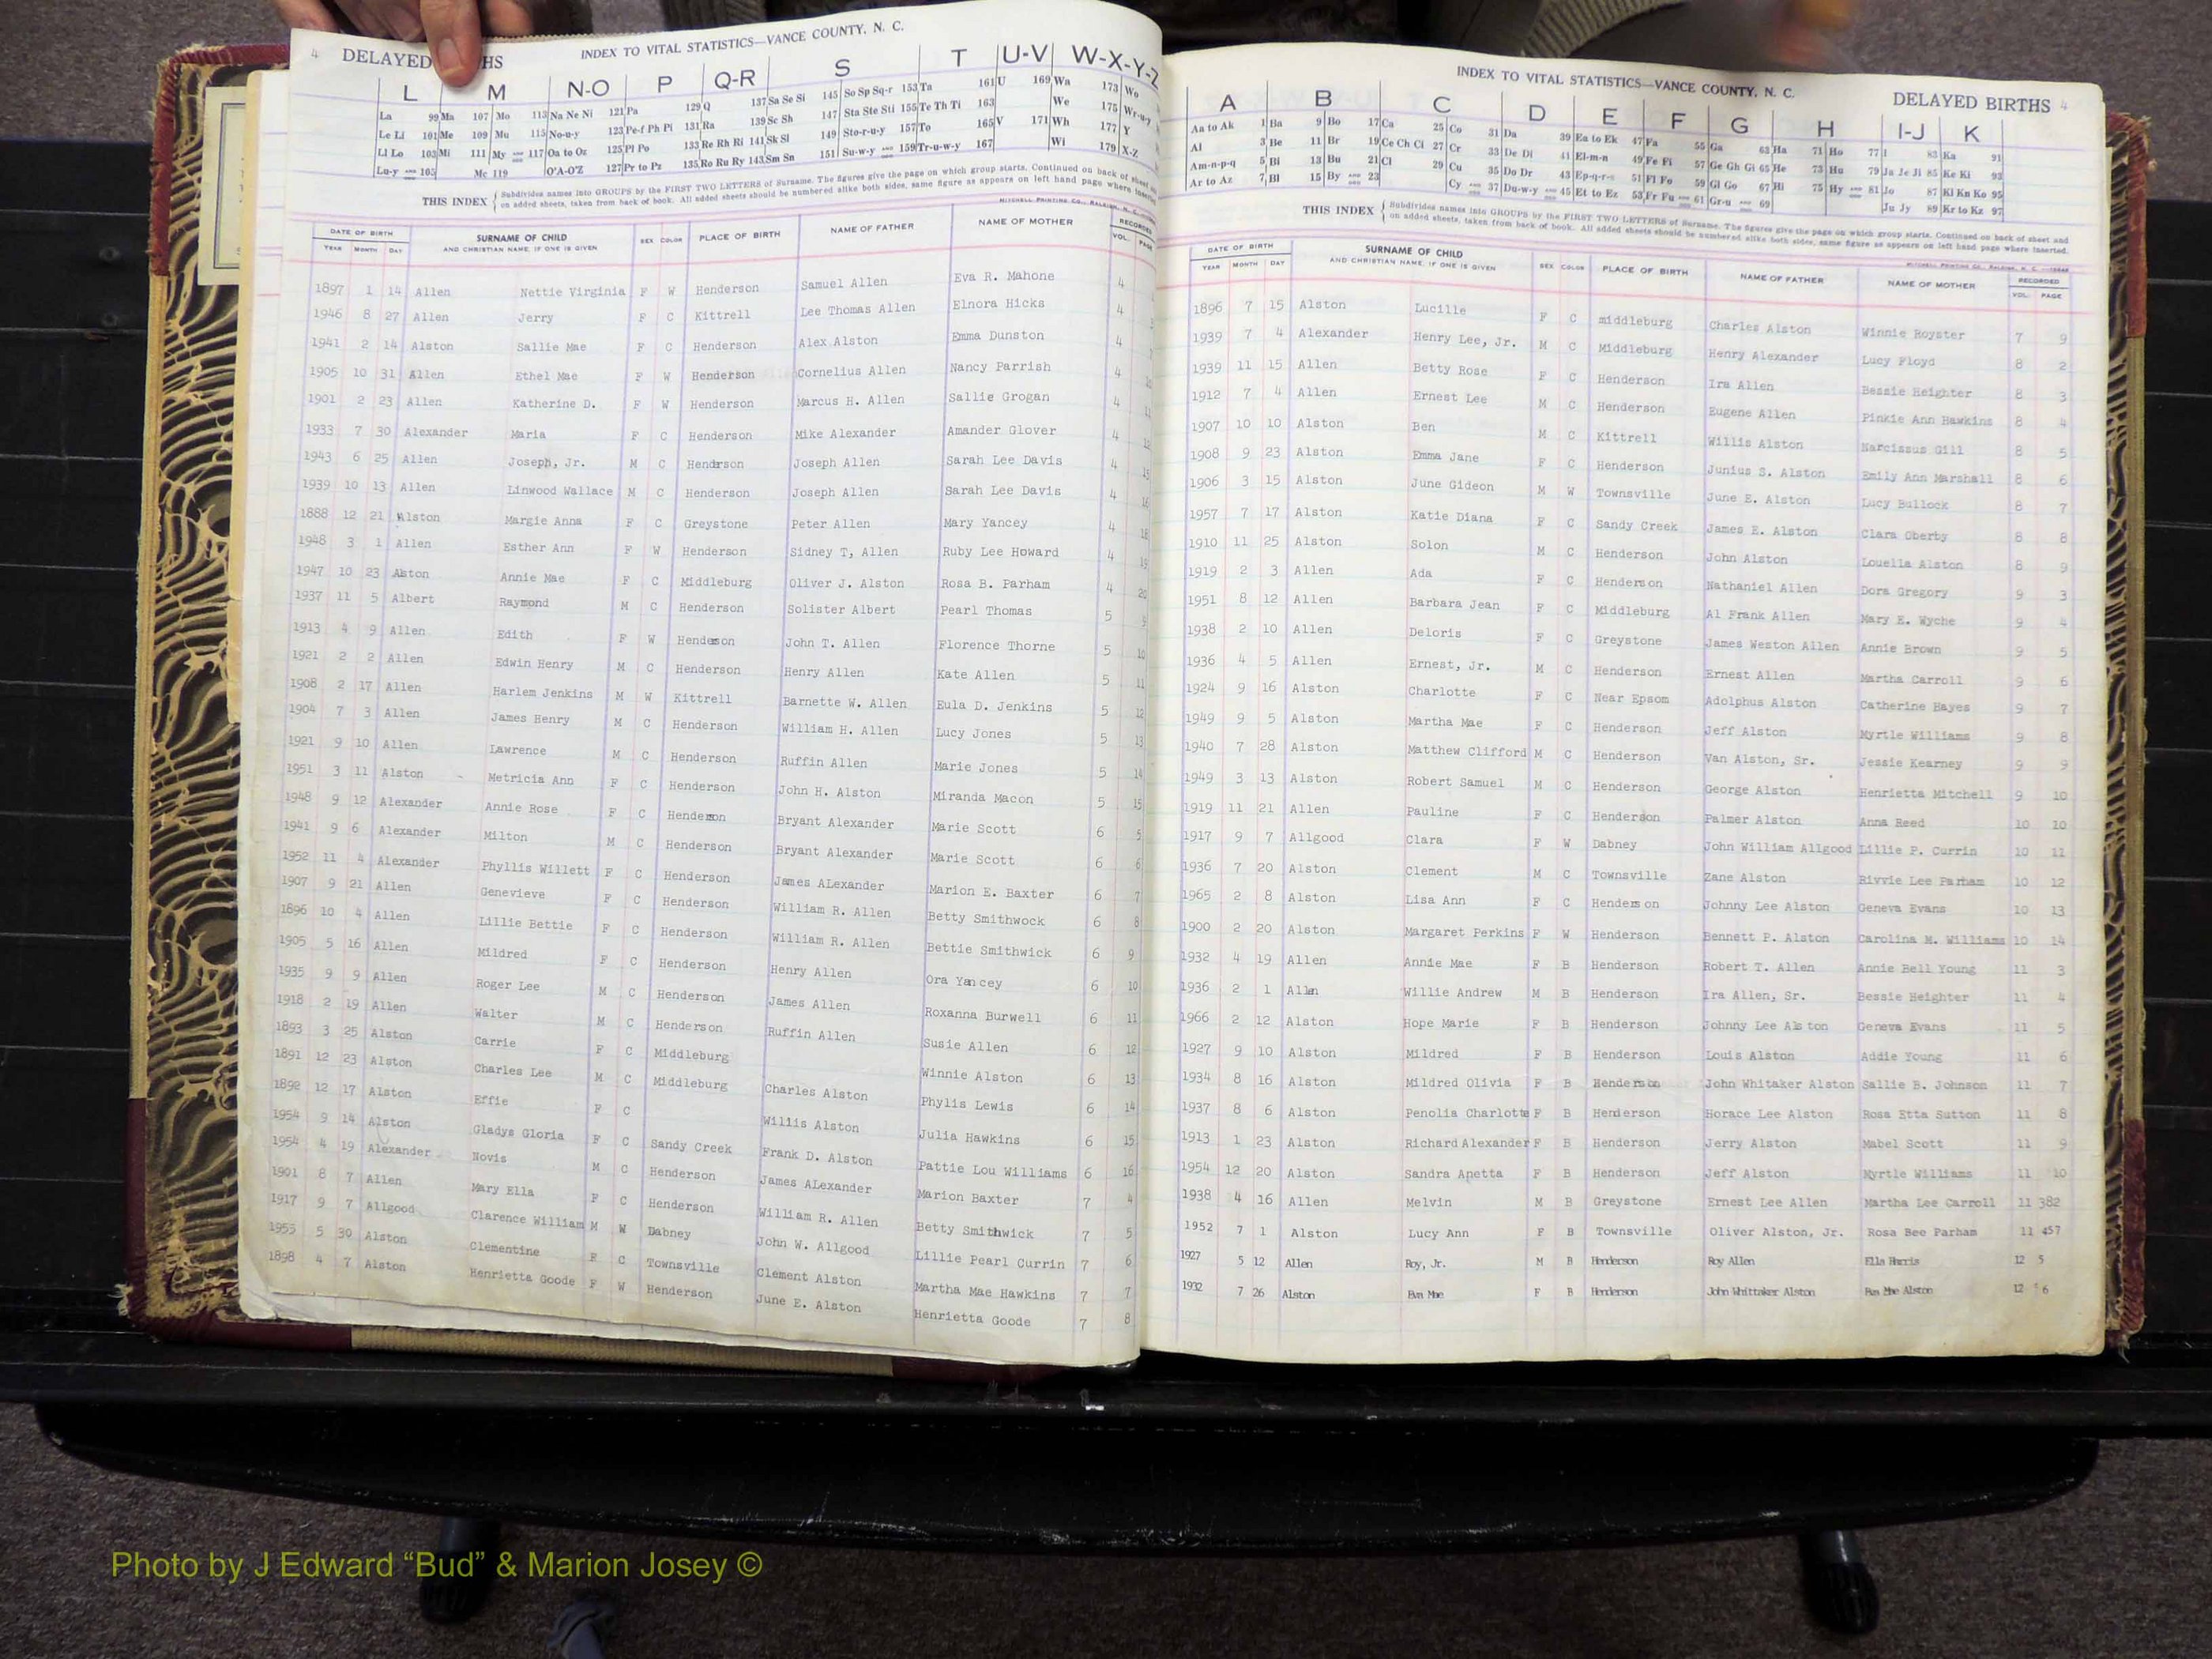 4 DELAYED HS INDEX TO VITAL STATISTICS—VANCE COUNTY, N. C.
L M N-O P Q-R S T U-V W-X-Y-Z
La 99 Ma 107 Mo 113 Na Ne Ni 121 Pa 129 Q 137 Sa Se Si 145 So Sp Sq-r 153 Ta 161 U 169 Wa 173 Wo
Le Li 101 Me 109 Mu 115 No-u-y 123 Pe-f Ph Pi 131 Ra 139 Sc Sh 147 Sta Ste Sti 155 Te Th Ti 163 We 175 Wr-u-y
Ll Lo 103 Mi 111 My 117 Oa to Oz 125 Pl Po 133 Re Rh Ri 141 Sk Sl 149 Sto-r-u-y 157 To 165 V 171 Wh 177 Y
Lu-y 105 Mc 119 O'A-O'Z 127 Pr to Pz 135 Ro Ru Ry 143 Sm Sn 151 Su-w-y 159 Tr-u-w-y 167 Wi 179 X-Z
THIS INDEX Subdivides names into GROUPS by the FIRST TWO LETTERS of Surname. The figures give the page on which group starts. Continued on back of sheet
on added sheets, taken from back of book. All added sheets should be numbered alike both sides, same figure as appears on left hand page where inserted.
MITCHELL PRINTING CO., RALEIGH, N. C.
DATE OF BIRTH SURNAME OF CHILD SEX COLOR PLACE OF BIRTH NAME OF FATHER NAME OF MOTHER RECORDED
YEAR MONTH DAY AND CHRISTIAN NAME, IF ONE IS GIVEN VOL. PAGE
1897 1 14 Allen Nettie Virginia F W Henderson Samuel Allen Eva R. Mahone 4
1946 8 27 Allen Jerry F C Kittrell Lee Thomas Allen Elnora Hicks 4
1941 2 14 Alston Sallie Mae F C Henderson Alex Alston Emma Dunston 4
1905 10 31 Allen Ethel Mae F W Henderson Cornelius Allen Nancy Parrish 4 10
1901 2 23 Allen Katherine D. F W Henderson Marcus H. Allen Sallie Grogan 4 11
1933 7 30 Alexander Maria F C Henderson Mike Alexander Amander Glover 4 12
1943 6 25 Allen Joseph, Jr. M C Henderson Joseph Allen Sarah Lee Davis 4 15
1939 10 13 Allen Linwood Wallace M C Henderson Joseph Allen Sarah Lee Davis 4 16
1888 12 21 Alston Margie Anna F C Greystone Peter Allen Mary Yancey 4 18
1948 3 1 Allen Esther Ann F W Henderson Sidney T, Allen Ruby Lee Howard 4 19
1947 10 23 Alston Annie Mae F C Middleburg Oliver J. Alston Rosa B. Parham 4 20
1937 11 5 Albert Raymond M C Henderson Solister Albert Pearl Thomas 5 9
1913 4 9 Allen Edith F W Henderson John T. Allen Florence Thorne 5 10
1921 2 2 Allen Edwin Henry M C Henderson Henry Allen Kate Allen 5 11
1908 2 17 Allen Harlem Jenkins M W Kittrell Barnette W. Allen Eula D. Jenkins 5 12
1904 7 3 Allen James Henry M C Henderson William H. Allen Lucy Jones 5 13
1921 9 10 Allen Lawrence M C Henderson Ruffin Allen Marie Jones 5 14
1951 3 11 Alston Metricia Ann F C Henderson John H. Alston Miranda Macon 5 15
1948 9 12 Alexander Annie Rose F C Henderson Bryant Alexander Marie Scott 6 5
1941 9 6 Alexander Milton M C Henderson Bryant Alexander Marie Scott 6 6
1952 11 4 Alexander Phyllis Willett F C Henderson James ALexander Marion E. Baxter 6 7
1907 9 21 Allen Genevieve F C Henderson William R. Allen Betty Smithwock 6 8
1896 10 4 Allen Lillie Bettie F C Henderson William R. Allen Bettie Smithwick 6 9
1905 5 16 Allen Mildred F C Henderson Henry Allen Ora Yancey 6 10
1935 9 9 Allen Roger Lee M C Henderson James Allen Roxanna Burwell 6 11
1918 2 19 Allen Walter M C Henderson Ruffin Allen Susie Allen 6 12
1893 3 25 Alston Carrie F C Middleburg Winnie Alston 6 13
1891 12 23 Alston Charles Lee M C Middleburg Charles Alston Phylis Lewis 6 14
1892 12 17 Alston Effie F C Willis Alston Julia Hawkins 6 15
1954 9 14 Alston Gladys Gloria F C Sandy Creek Frank D. Alston Pattie Lou Williams 6 16
1954 4 19 Alexander Novis M C Henderson James ALexander Marion Baxter 7 4
1901 8 7 Allen Mary Ella F C Henderson William R. Allen Betty Smithwick 7 5
1917 9 7 Allgood Clarence William M W Dabney John W. Allgood Lillie Pearl Currin 7 6
1955 5 30 Alston Clementine F C Townsville Clement Alston Martha Mae Hawkins 7 7
1898 4 7 Alston Henrietta Goode F W Henderson June E. Alston Henrietta Goode 7 8
INDEX TO VITAL STATISTICS—VANCE COUNTY, N. C. DELAYED BIRTHS 4
A B C D E F G H I-J K
Aa to Ak 1 Ba 9 Bo 17 Ca 25 Co 31 Da 39 Ea to Ek 47 Fa 55 Ga 63 Ha 71 Ho 77 I 83 Ka 91
Al 3 Be 11 Br 19 Ce Ch Ci 27 Cr 33 De Di 41 El-m-n 49 Fe Fi 57 Ge Gh Gi 65 He 73 Hu 79 Ja Je Ji 85 Ke Ki 93
Am-n-p-q 5 Bi 13 Bu 21 Cl 29 Cu 35 Do Dr 43 Ep-q-r-s 51 Fl Fo 59 Gl Go 67 Hi 75 Hy 81 Jo 87 Kl Kn Ko 95
Ar to Az 7 Bl 15 By 23 Cy 37 Du-w-y 45 Et to Ez 53 Fr Fu 61 Gr-u 69 Ju Jy 89 Kr to Kz 97
THIS INDEX Subdivides names into GROUPS by the FIRST TWO LETTERS of Surname. The figures give the page on which group starts. Continued on back of sheet and
on added sheets, taken from back of book. All added sheets should be numbered alike both sides, same figure as appears on left hand page where inserted.
MITCHELL PRINTING CO., RALEIGH, N. C.
DATE OF BIRTH SURNAME OF CHILD SEX COLOR PLACE OF BIRTH NAME OF FATHER NAME OF MOTHER RECORDED
YEAR MONTH DAY AND CHRISTIAN NAME, IF ONE IS GIVEN VOL. PAGE
1896 7 15 Alston Lucille F C middleburg Charles Alston Winnie Royster 7 9
1939 7 4 Alexander Henry Lee, Jr. M C Middleburg Henry Alexander Lucy Floyd 8 2
1939 11 15 Allen Betty Rose F C Henderson Ira Allen Bessie Heighter 8 3
1912 7 4 Allen Ernest Lee M C Henderson Eugene Allen Pinkie Ann Hawkins 8 4
1907 10 10 Alston Ben M C Kittrell Willis Alston Narcissus Gill 8 5
1908 9 23 Alston Emma Jane F C Henderson Junius S. Alston Emily Ann Marshall 8 6
1906 3 15 Alston June Gideon M W Townsville June E. Alston Lucy Bullock 8 7
1957 7 17 Alston Katie Diana F C Sandy Creek James E. Alston Clara Oberby 8 8
1910 11 25 Alston Solon M C Henderson John Alston Louella Alston 8 9
1919 2 3 Allen Ada F C Henderson Nathaniel Allen Dora Gregory 9 3
1951 8 12 Allen Barbara Jean F C Middleburg Al Frank Allen Mary E. Wyche 9 4
1938 2 10 Allen Deloris F C Greystone James Weston Allen Annie Brown 9 5
1936 4 5 Allen Ernest, Jr. M C Henderson Ernest Allen Martha Carroll 9 6
1924 9 16 Alston Charlotte F C Near Epsom Adolphus Alston Catherine Hayes 9 7
1949 9 5 Alston Martha Mae F C Henderson Jeff Alston Myrtle Williams 9 8
1940 7 28 Alston Matthew Clifford M C Henderson Van Alston, Sr. Jessie Kearney 9 9
1949 3 13 Alston Robert Samuel M C Henderson George Alston Henrietta Mitchell 9 10
1919 11 21 Allen Pauline F C Henderson Palmer Alston Anna Reed 10 10
1917 9 7 Allgood Clara F W Dabney John William Allgood Lillie P. Currin 10 11
1936 7 20 Alston Clement M C Townsville Zane Alston Rivvie Lee Parham 10 12
1965 2 8 Alston Lisa Ann F C Henderson Johnny Lee Alston Geneva Evans 10 13
1900 2 20 Alston Margaret Perkins F W Henderson Bennett P. Alston Carolina M. Williams 10 14
1932 4 19 Allen Annie Mae F B Henderson Robert T. Allen Annie Bell Young 11 3
1936 2 1 Allen Willie Andrew M B Henderson Ira Allen, Sr. Bessie Heighter 11 4
1966 2 12 Alston Hope Marie F B Henderson Johnny Lee Alston Geneva Evans 11 5
1927 9 10 Alston Mildred F B Henderson Louis Alston Addie Young 11 6
1934 8 16 Alston Mildred Olivia F B Henderson John Whitaker Alston Sallie B. Johnson 11 7
1937 8 6 Alston Penolia Charlotte F B Henderson Horace Lee Alston Rosa Etta Sutton 11 8
1913 1 23 Alston Richard Alexander F B Henderson Jerry Alston Mabel Scott 11 9
1954 12 20 Alston Sandra Anetta F B Henderson Jeff Alston Myrtle Williams 11 10
1938 4 16 Allen Melvin M B Greystone Ernest Lee Allen Martha Lee Carroll 11 382
1952 7 1 Alston Lucy Ann F B Townsville Oliver Alston, Jr. Rosa Bee Parham 11 457
1927 5 12 Allen Roy, Jr. M B Henderson Roy Allen Ella Harris 12 5
1932 7 26 Alston Eva Mae F B Henderson John Whittaker Alston Eva Mae Alston 12 6
Photo by J Edward “Bud” & Marion Josey ©